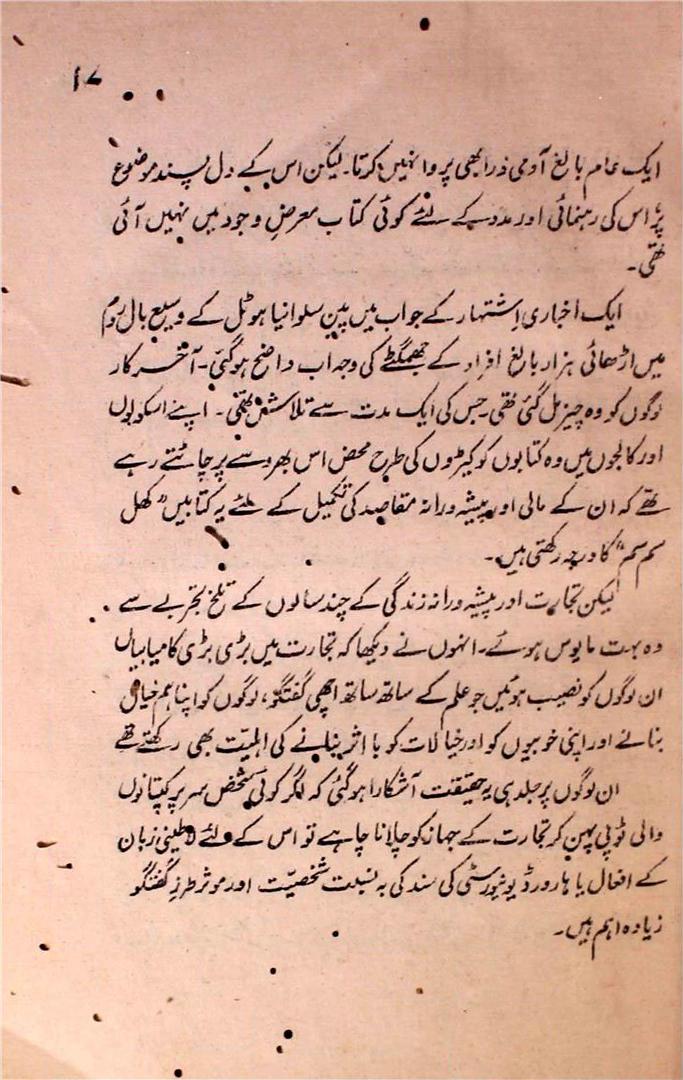 ۱۷
ایک عام بالغ آدمی ذرا بھی پروا نہیں کرتا۔ لیکن اس کے دل پسند موضوع
پر اس کی رہنمائی اور مدد کے لئے کوئی کتاب معرضِ وجود میں نہیں آئی
تھی۔
ایک اخباری اِشتہار کے جواب میں پین سلوانیا ہوٹل کے وسیع بال روم
میں اڑھائی ہزار بالغ افراد کے جمگھٹے کی وجہ اب واضح ہوگئی۔ آخر کار
لوگوں کو وہ چیز مل گئی تھی جس کی ایک مدت سے تلاش تھی۔ اپنے اسکولوں
اور کالجوں میں وہ کتابوں کو کیڑوں کی طرح محض اس بھروسے پر چاٹتے رہے
تھے کہ ان کے مالی اور پیشہ ورانہ مقاصد کی تکمیل کے لئے یہ کتابیں "کھل
سم سم" کا درجہ رکھتی ہیں۔
لیکن تجارت اور پیشہ ورانہ زندگی کے چند سالوں کے تلخ تجربے سے
وہ بہت مایوس ہوئے۔ انہوں نے دیکھا کہ تجارت میں بڑی بڑی کامیابیاں
ان لوگوں کو نصیب ہوئیں جو علم کے ساتھ ساتھ اچھی گفتگو، لوگوں کو اپنا ہم خیال
بنانے اور اپنی خوبیوں کو اور خیالات کو با اثر بنانے کی اہلیّت بھی رکھتے تھے
ان لوگوں پر جلد ہی یہ حقیقت آشکارا ہوگئی کہ اگر کوئی شخص سر پر کپتانوں
والی ٹوپی پہن کر تجارت کے جہاز کو چلانا چاہے تو اس کے لئے لاطینی زبان
کے افعال یا ہارورڈ یونیورسٹی کی سند کی بہ نسبت شخصیّت اور موثر طرزِ گفتگو
زیادہ اہم ہیں۔